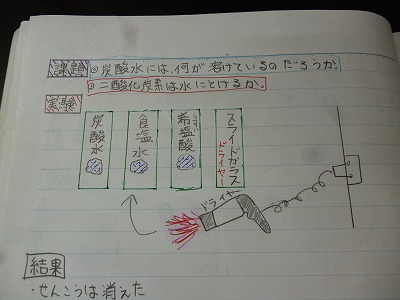 課題 ◎炭酸水には、何が溶けているのだろうか。
◎二酸化炭素は水にとけるか。
実験
炭酸水
食塩水
希塩酸
うすい
スライドガラス
ドライヤー
ドライヤー
結果
・せんこうは消えた